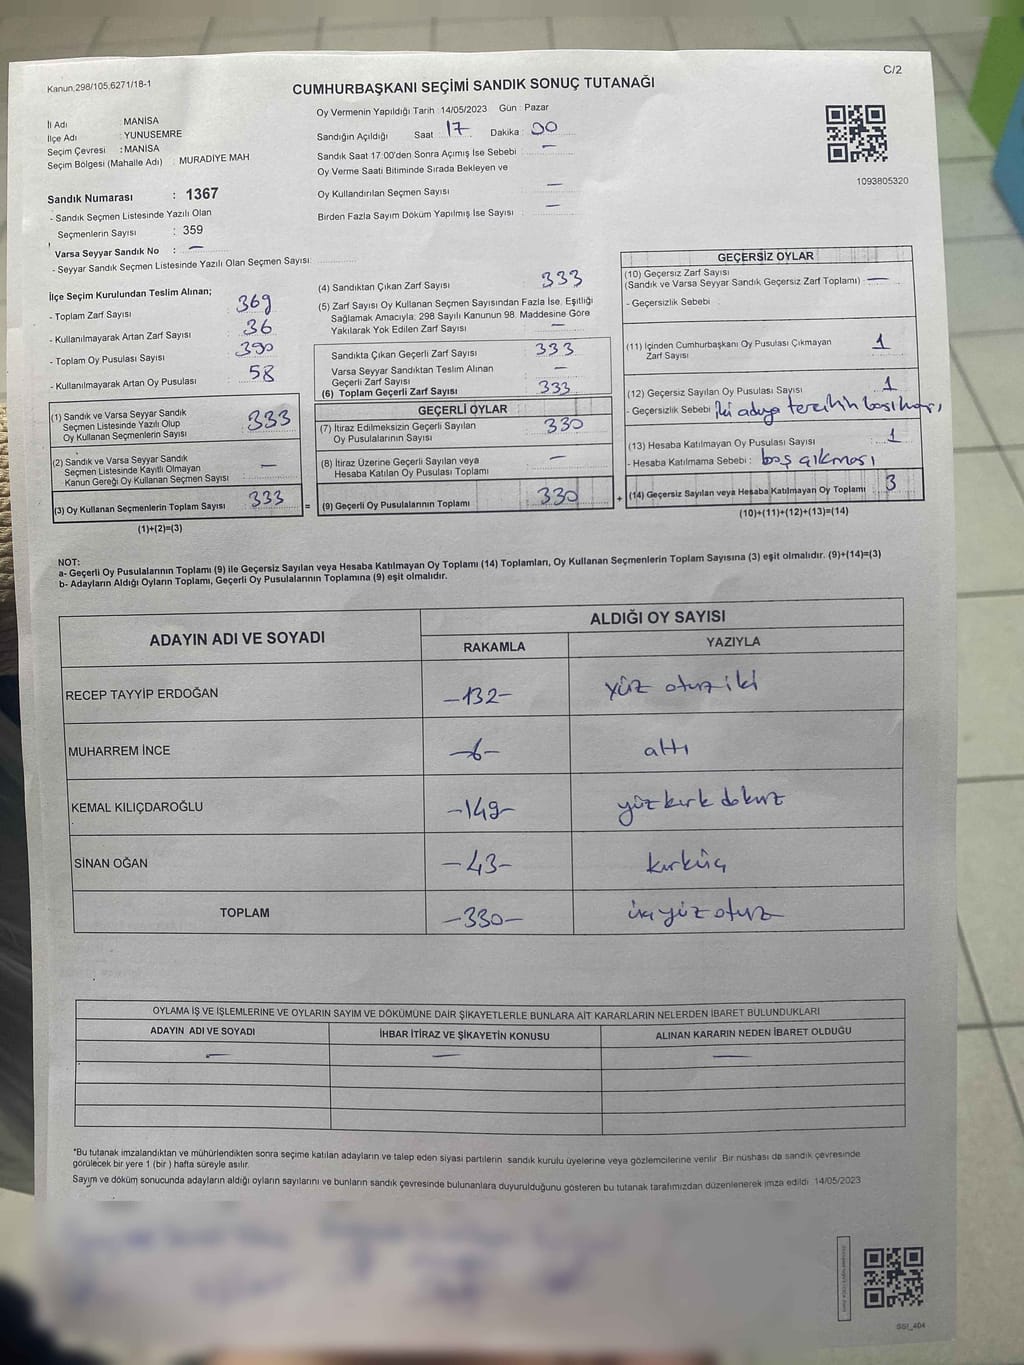 Kanun,298/105,6271/18-1
C/2
CUMHURBAŞKANI SEÇİMİ SANDIK SONUÇ TUTANAĞI
İl Adı : MANİSA
İlçe Adı : YUNUSEMRE
Seçim Çevresi : MANİSA
Seçim Bölgesi (Mahalle Adı) : MURADİYE MAH
Sandık Numarası : 1367
- Sandık Seçmen Listesinde Yazılı Olan
Seçmenlerin Sayısı : 359
Varsa Seyyar Sandık No : —
- Seyyar Sandık Seçmen Listesinde Yazılı Olan Seçmen Sayısı:
Oy Vermenin Yapıldığı Tarih : 14/05/2023 Gün : Pazar
Sandığın Açıldığı Saat : 17 Dakika : 00
Sandık Saat 17:00'den Sonra Açımış İse Sebebi : —
Oy Verme Saati Bitiminde Sırada Bekleyen ve
Oy Kullandırılan Seçmen Sayısı : —
Birden Fazla Sayım Döküm Yapılmış İse Sayısı : —
1093805320
İlçe Seçim Kurulundan Teslim Alınan;
- Toplam Zarf Sayısı 369
- Kullanılmayarak Artan Zarf Sayısı 36
- Toplam Oy Pusulası Sayısı 390
- Kullanılmayarak Artan Oy Pusulası 58
(1) Sandık ve Varsa Seyyar Sandık
Seçmen Listesinde Yazılı Olup
Oy Kullanan Seçmenlerin Sayısı 333
(2) Sandık ve Varsa Seyyar Sandık
Seçmen Listesinde Kayıtlı Olmayan
Kanun Gereği Oy Kullanan Seçmen Sayısı —
(3) Oy Kullanan Seçmenlerin Toplam Sayısı 333
(1)+(2)=(3)
=
(4) Sandıktan Çıkan Zarf Sayısı 333
(5) Zarf Sayısı Oy Kullanan Seçmen Sayısından Fazla İse, Eşitliği
Sağlamak Amacıyla; 298 Sayılı Kanunun 98. Maddesine Göre
Yakılarak Yok Edilen Zarf Sayısı —
Sandıkta Çıkan Geçerli Zarf Sayısı 333
Varsa Seyyar Sandıktan Teslim Alınan
Geçerli Zarf Sayısı —
(6) Toplam Geçerli Zarf Sayısı 333
GEÇERLİ OYLAR
(7) İtiraz Edilmeksizin Geçerli Sayılan
Oy Pusulalarının Sayısı 330
(8) İtiraz Üzerine Geçerli Sayılan veya
Hesaba Katılan Oy Pusulası Toplamı —
(9) Geçerli Oy Pusulalarının Toplamı 330
+
GEÇERSİZ OYLAR
(10) Geçersiz Zarf Sayısı
(Sandık ve Varsa Seyyar Sandık Geçersiz Zarf Toplamı) : —
- Geçersizlik Sebebi :
(11) İçinden Cumhurbaşkanı Oy Pusulası Çıkmayan
Zarf Sayısı 1
(12) Geçersiz Sayılan Oy Pusulası Sayısı 1
- Geçersizlik Sebebi : iki adaya tercihin basılması
(13) Hesaba Katılmayan Oy Pusulası Sayısı 1
- Hesaba Katılmama Sebebi : boş çıkması
(14) Geçersiz Sayılan veya Hesaba Katılmayan Oy Toplamı 3
(10)+(11)+(12)+(13)=(14)
NOT:
a- Geçerli Oy Pusulalarının Toplamı (9) ile Geçersiz Sayılan veya Hesaba Katılmayan Oy Toplamı (14) Toplamları, Oy Kullanan Seçmenlerin Toplam Sayısına (3) eşit olmalıdır. (9)+(14)=(3)
b- Adayların Aldığı Oyların Toplamı, Geçerli Oy Pusulalarının Toplamına (9) eşit olmalıdır.
ADAYIN ADI VE SOYADI ALDIĞI OY SAYISI
RAKAMLA YAZIYLA
RECEP TAYYİP ERDOĞAN -132- yüz otuz iki
MUHARREM İNCE -6- altı
KEMAL KILIÇDAROĞLU -149- yüz kırk dokuz
SİNAN OĞAN -43- kırküç
TOPLAM -330- üçyüz otuz
OYLAMA İŞ VE İŞLEMLERİNE VE OYLARIN SAYIM VE DÖKÜMÜNE DAİR ŞİKAYETLERLE BUNLARA AİT KARARLARIN NELERDEN İBARET BULUNDUKLARI
ADAYIN ADI VE SOYADI İHBAR İTİRAZ VE ŞİKAYETİN KONUSU ALINAN KARARIN NEDEN İBARET OLDUĞU
— — —
*Bu tutanak imzalandıktan ve mühürlendikten sonra seçime katılan adayların ve talep eden siyasi partilerin sandık kurulu üyelerine veya gözlemcilerine verilir. Bir nüshası da sandık çevresinde
görülecek bir yere 1 (bir ) hafta süreyle asılır.
Sayım ve döküm sonucunda adayların aldığı oyların sayılarını ve bunların sandık çevresinde bulunanlara duyurulduğunu gösteren bu tutanak tarafımızdan düzenlenerek imza edildi. 14/05/2023
SSI_404